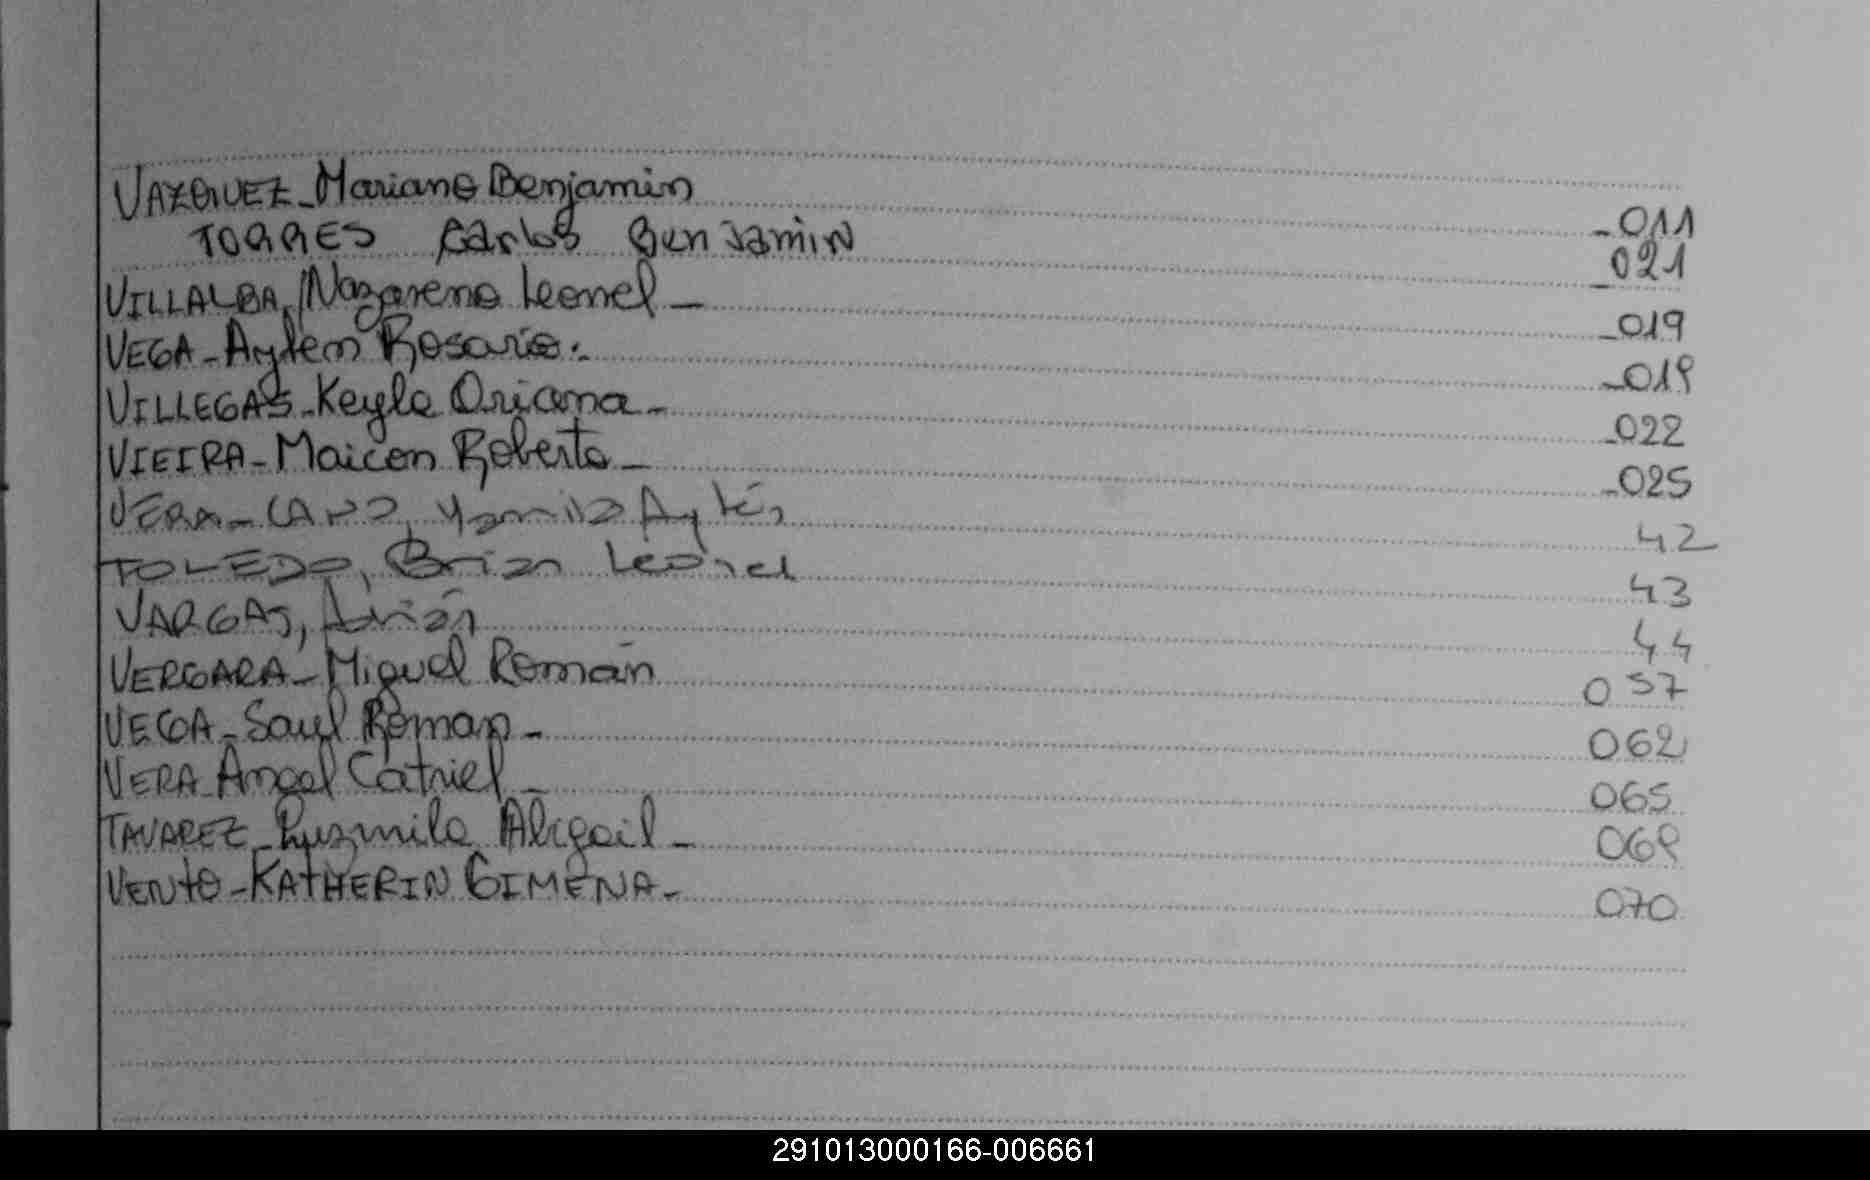 VAZQUEZ_Mariano Benjamin _011
TORRES Carlos Benjamin 021
VILLALBA, Nazareno Leonel _ _019
VEGA_Aylen Rosario. _019
VILLEGAS_Keyla Oriana _ _022
VIEIRA_Maicon Roberto _ _025
VERA_CANO, Yamila Aylén 42
TOLEDO, Brian Leonel 43
VARGAS, Adrián 44
VERGARA_Miguel Román 057
VEGA_Saul Roman _ 062
VERA_Angel Catriel _ 065
TAVAREZ_Luzmila Abigail _ 069
VENTO_KATHERIN GIMENA _ 070
291013000166-006661